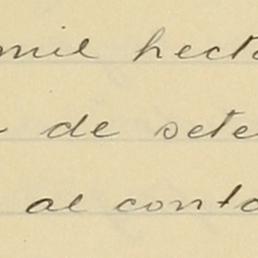 mil hecta
de sete
al conta